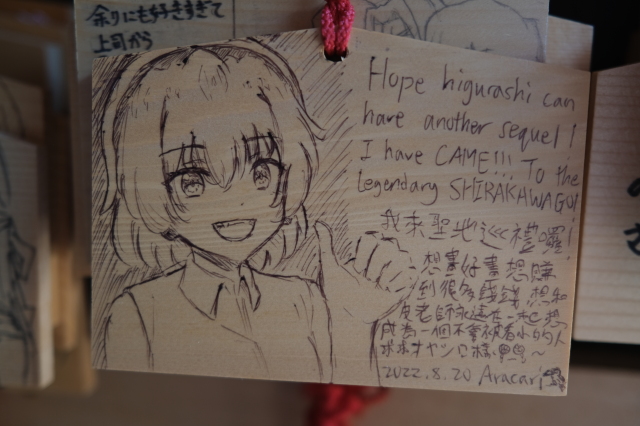 余りにも好きすぎて
上司から
Hope higurashi can
have another sequel!
I have CAME!!! To the
legendary SHIRAKAWAGO!
我來聖地巡禮囉!
想畫好畫想賺
到很多錢錢想和
友老師永遠在一起想
成為一個不會被看小的人
求求オヤシロ様
2022.8.20 Aracari